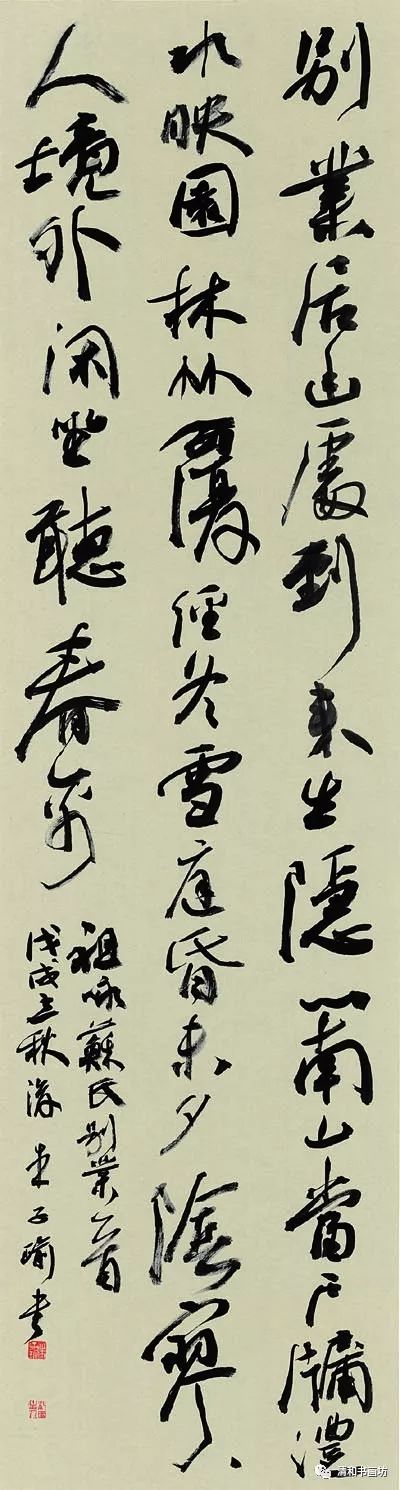 别業居幽處到来生隱心南山當户牖澧
水映園林竹覆經冬雪庭昏未夕陰寥々
人境外闲坐聽春禽
祖咏蘇氏别業一首
戊戌立秋 子瑜书
清和书画坊